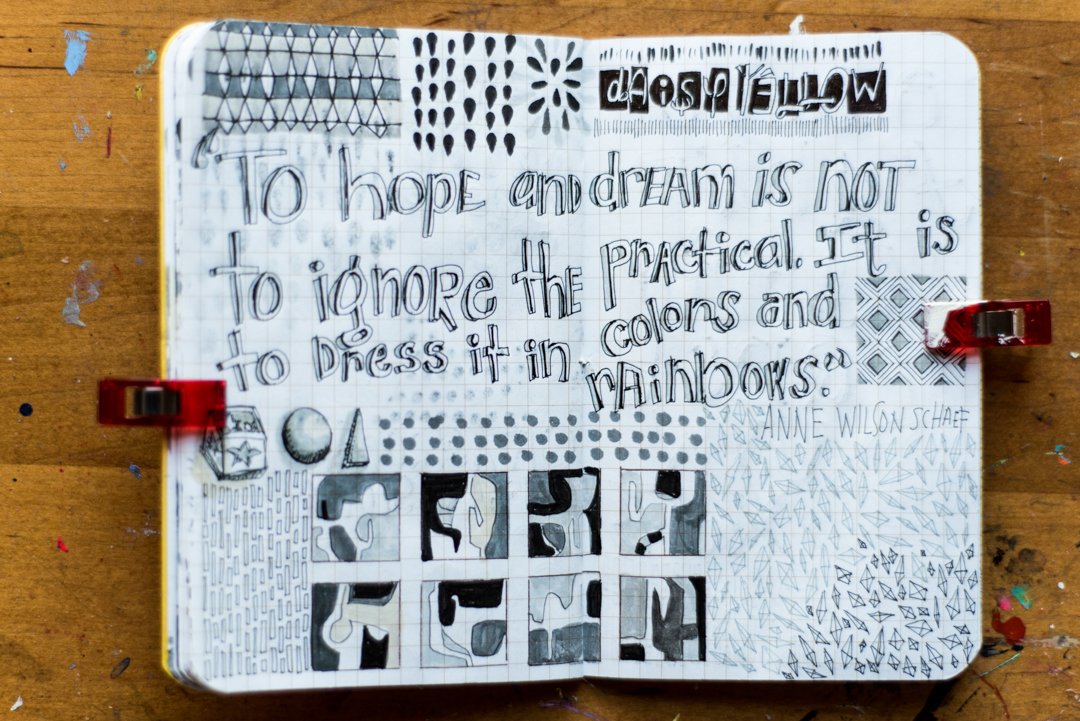 dAisy YELLOW
"To hope and dreAm is NOT
to ignoRe the prActical. It is
to Dress it in colors and
rAinbows."
ANNE WILSON SCHAEF